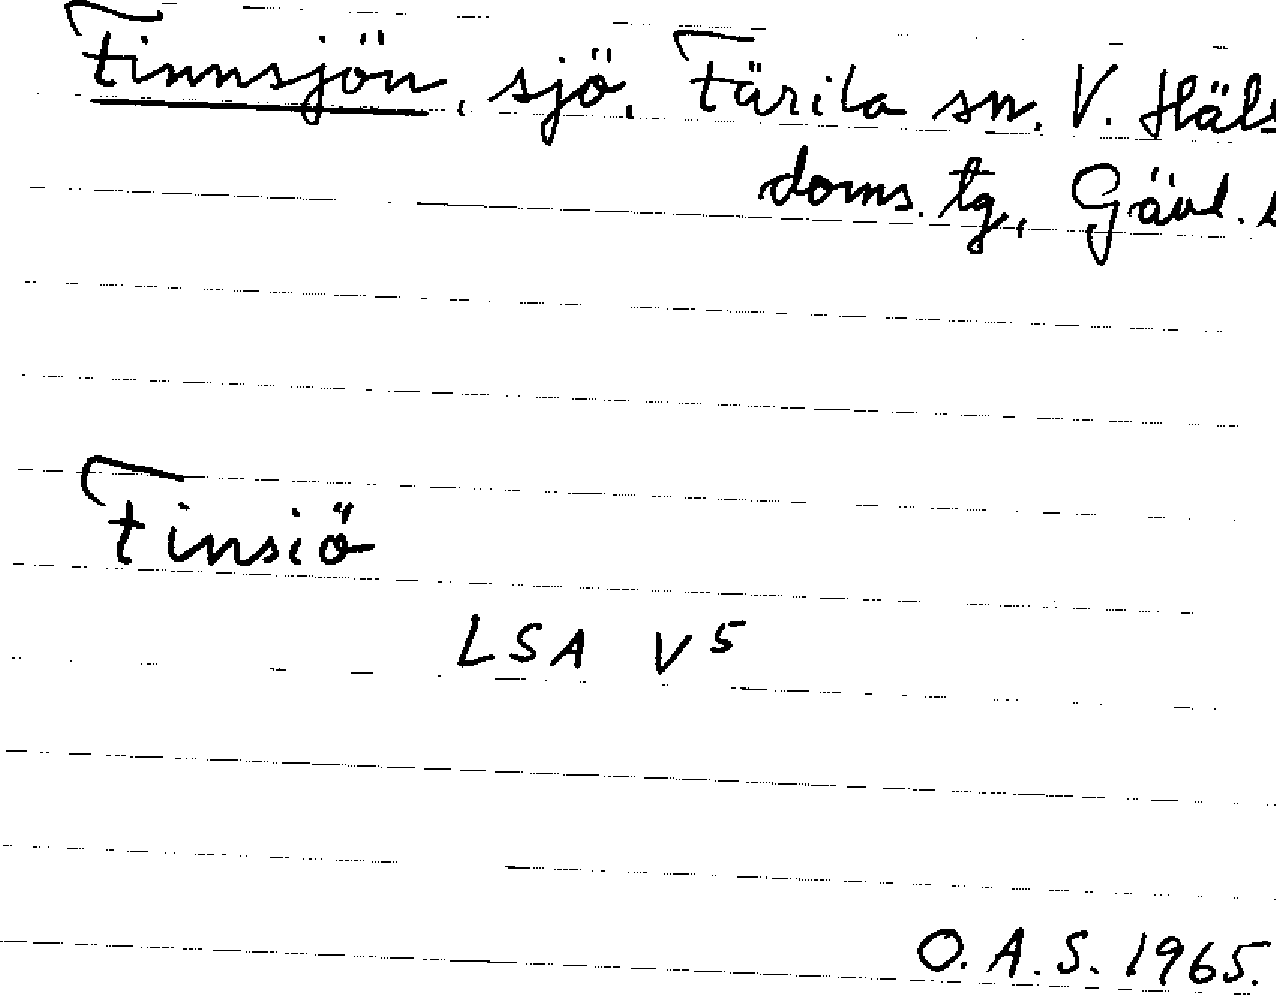 Finnsjön, sjö. Färila sn. V. Häls
doms. tg, Gävl.
Finsiö
LSA V5
O.A.S. 1965.